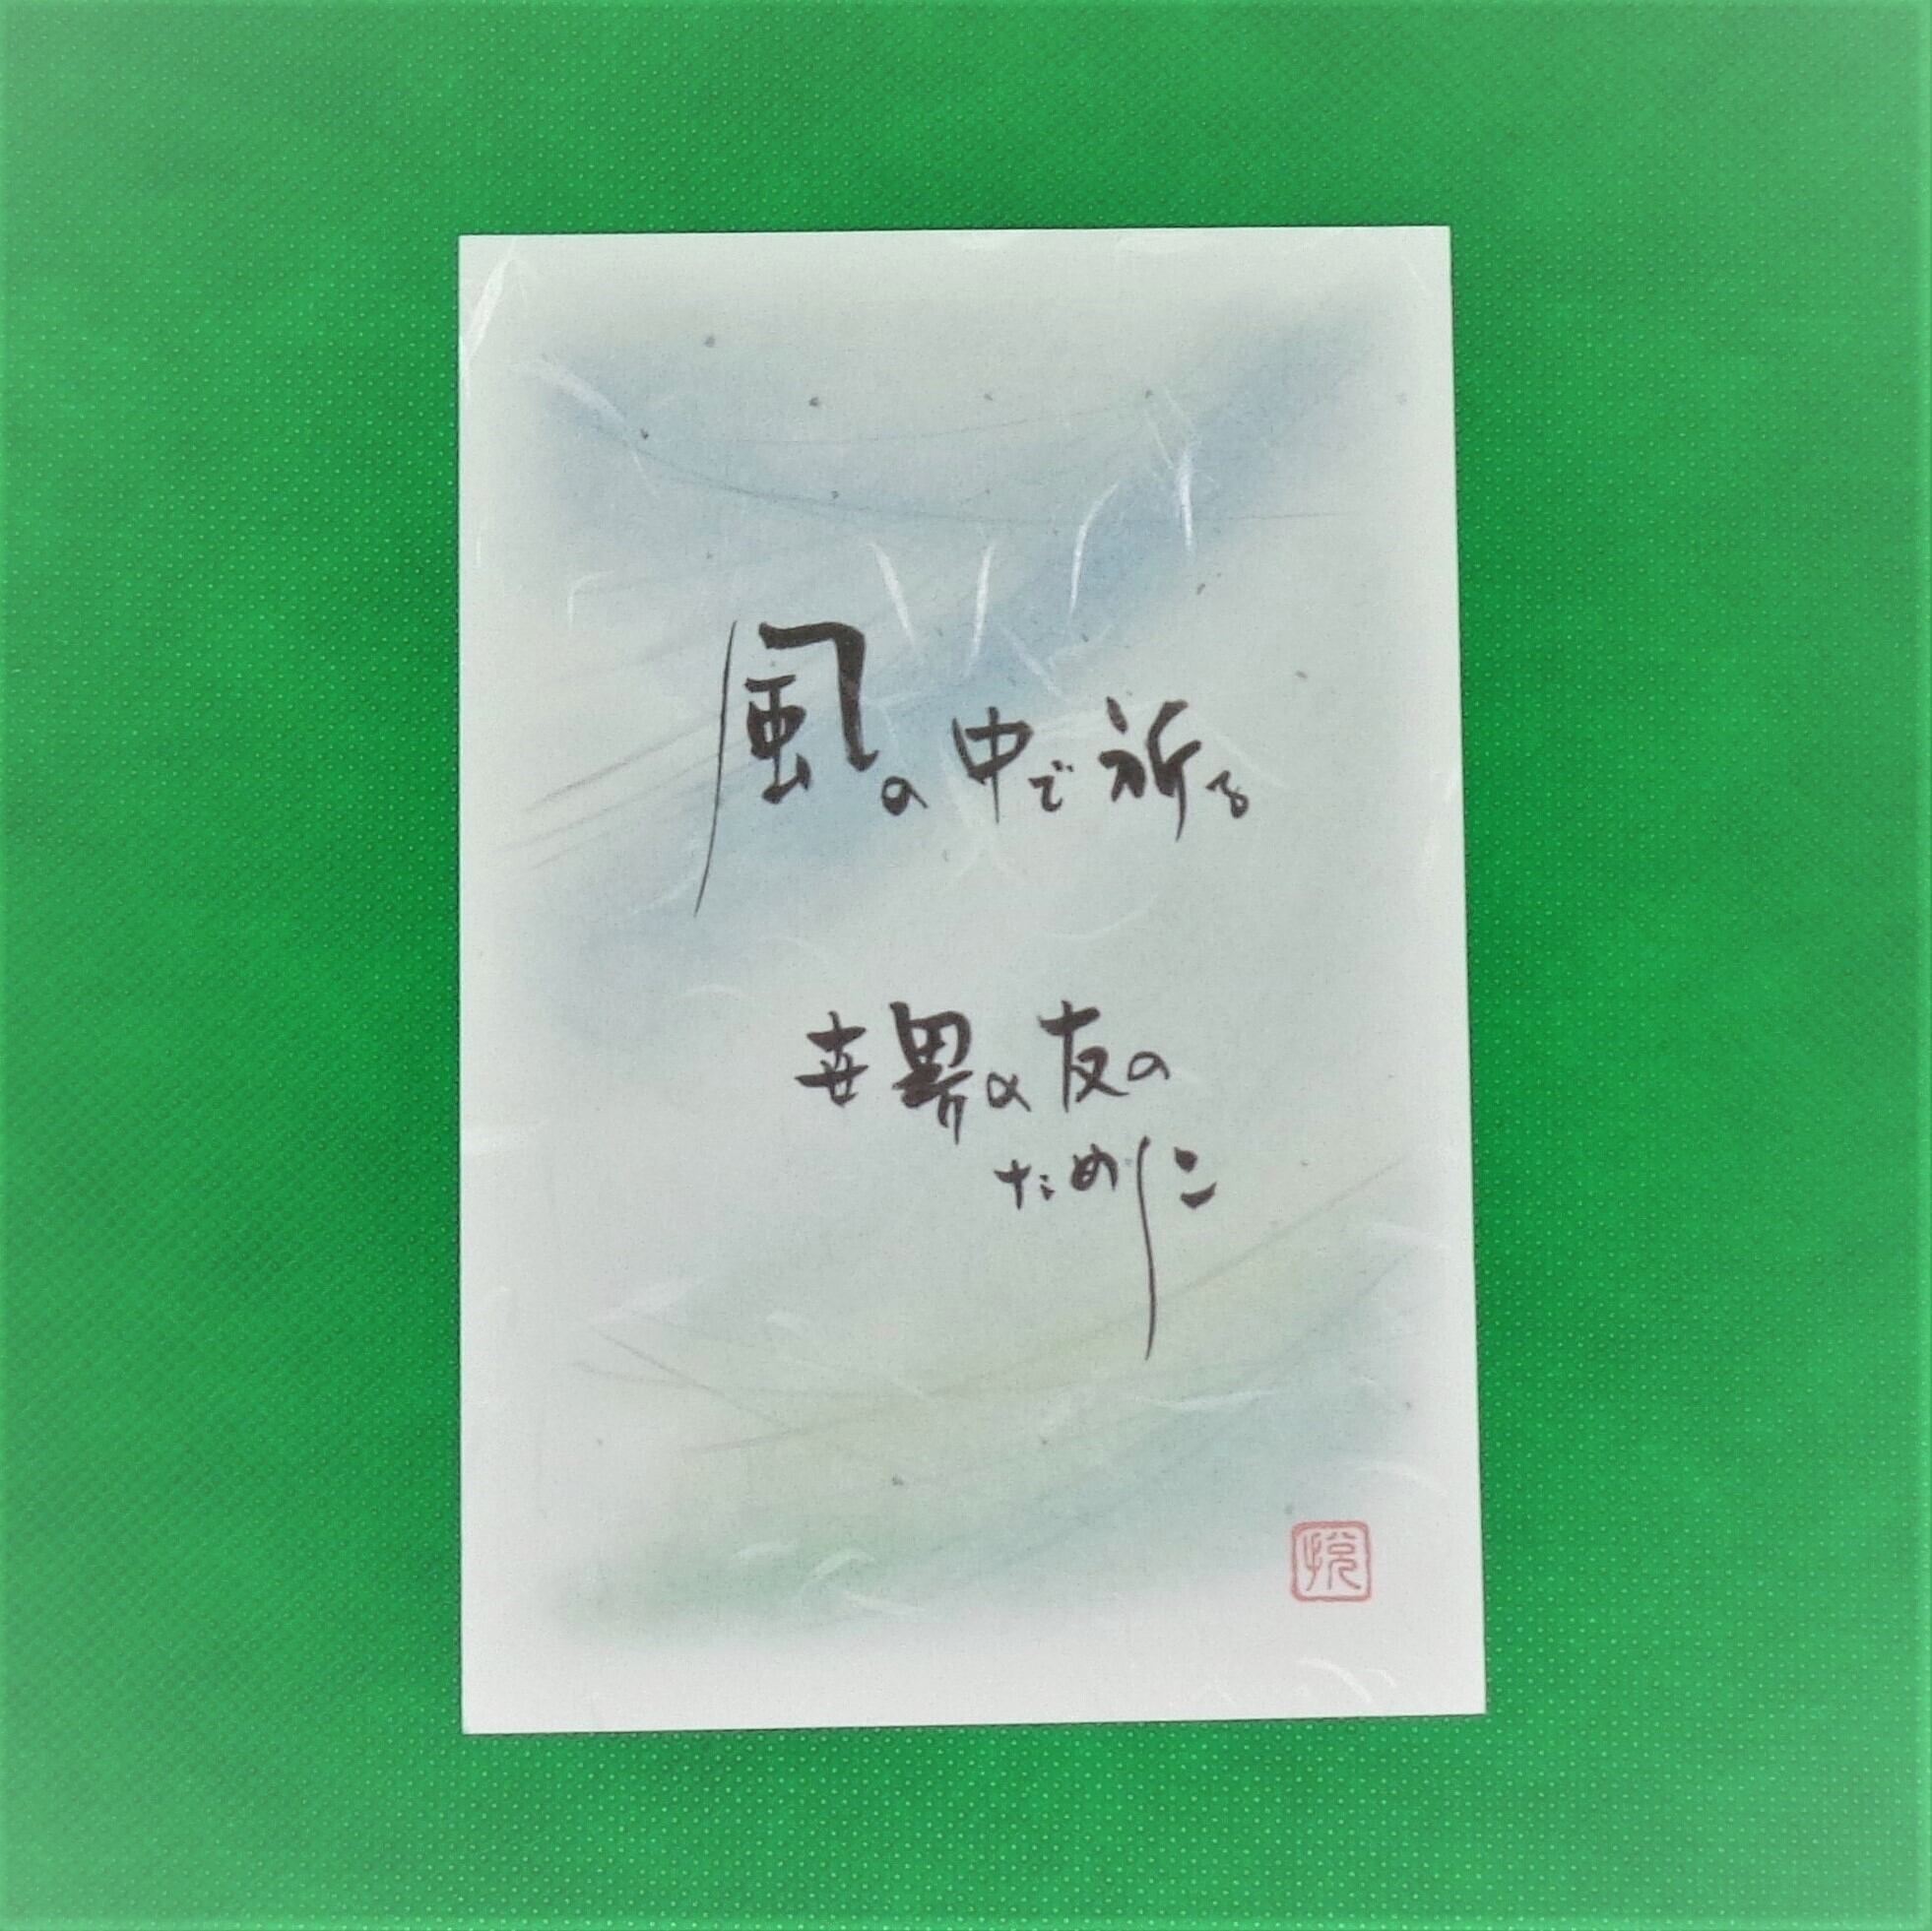 風の中で祈る
世界の友の
ために
悦